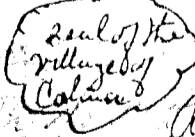 Seal of the
Village of
Colma